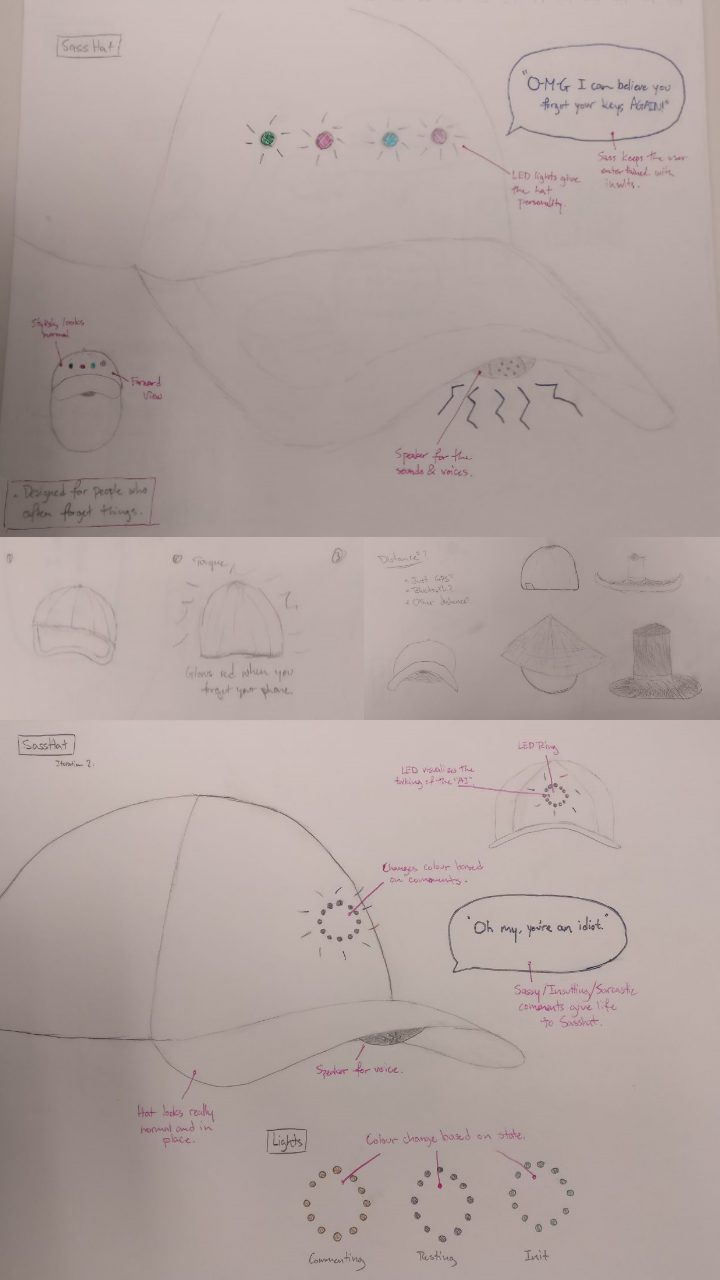 Sass Hat
"O-M-G I can believe you
forgot your keys AGAIN!"
Sass keeps the user
entertained with
insults.
LED lights give
the hat
personality.
Stylish, looks
normal
Forward
View
Speaker for the
sounds & voices.
• Designed for people who
often forget things.
①
②
③
Glows red when you
forgot your phone.
Distance??
• Just GPS?
• Bluetooth?
• Other
SassHat
Iteration 2.
LED Ring
LED visualises the
talking of the "AI".
Changes colour based
on comments.
"Oh my, you're an idiot."
Sassy/Insulting/Sarcastic
comments give life
to Sasshat.
Speaker for voice.
Hat looks really
normal and in
place.
Lights
Colour change based on state.
Commenting
Resting
Init